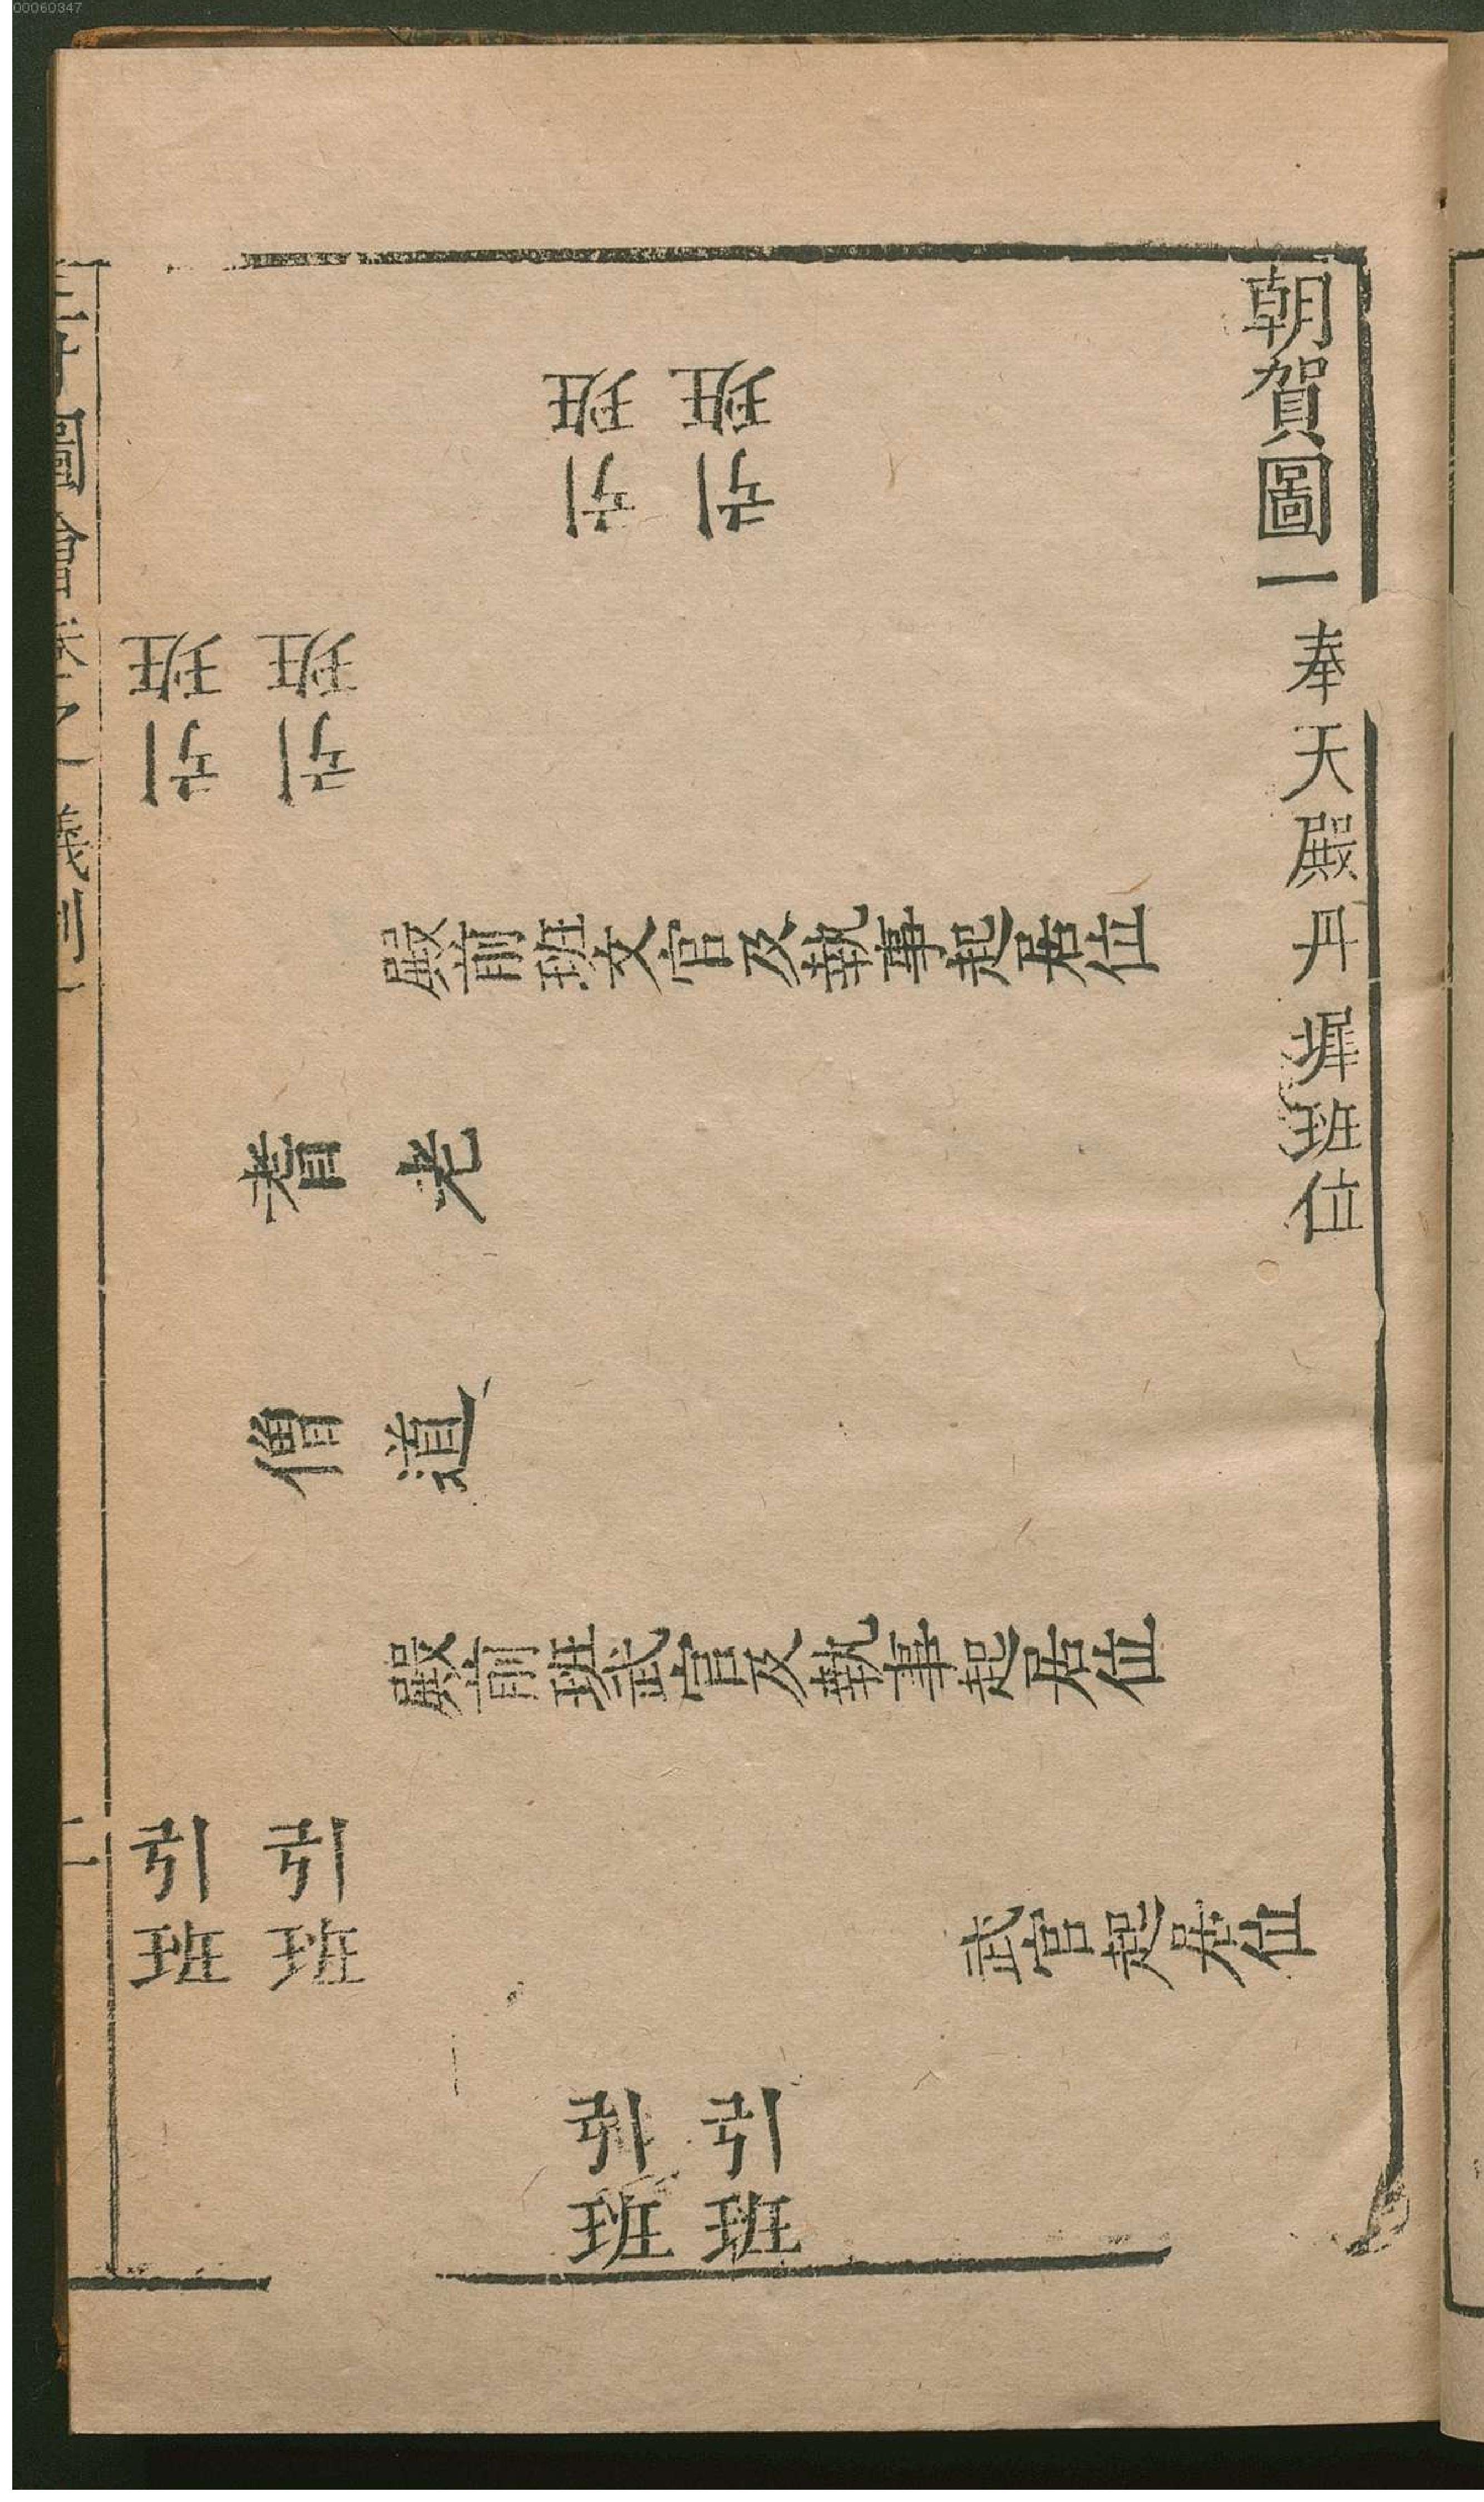 00060347
朝賀圖一 奉天殿丹墀班位
引班
引班
引班
引班
殿前班文官及執事起居位
耆老
僧道
殿前班武官及執事起居位
武官起居位
引班
引班
引班
引班
圖會